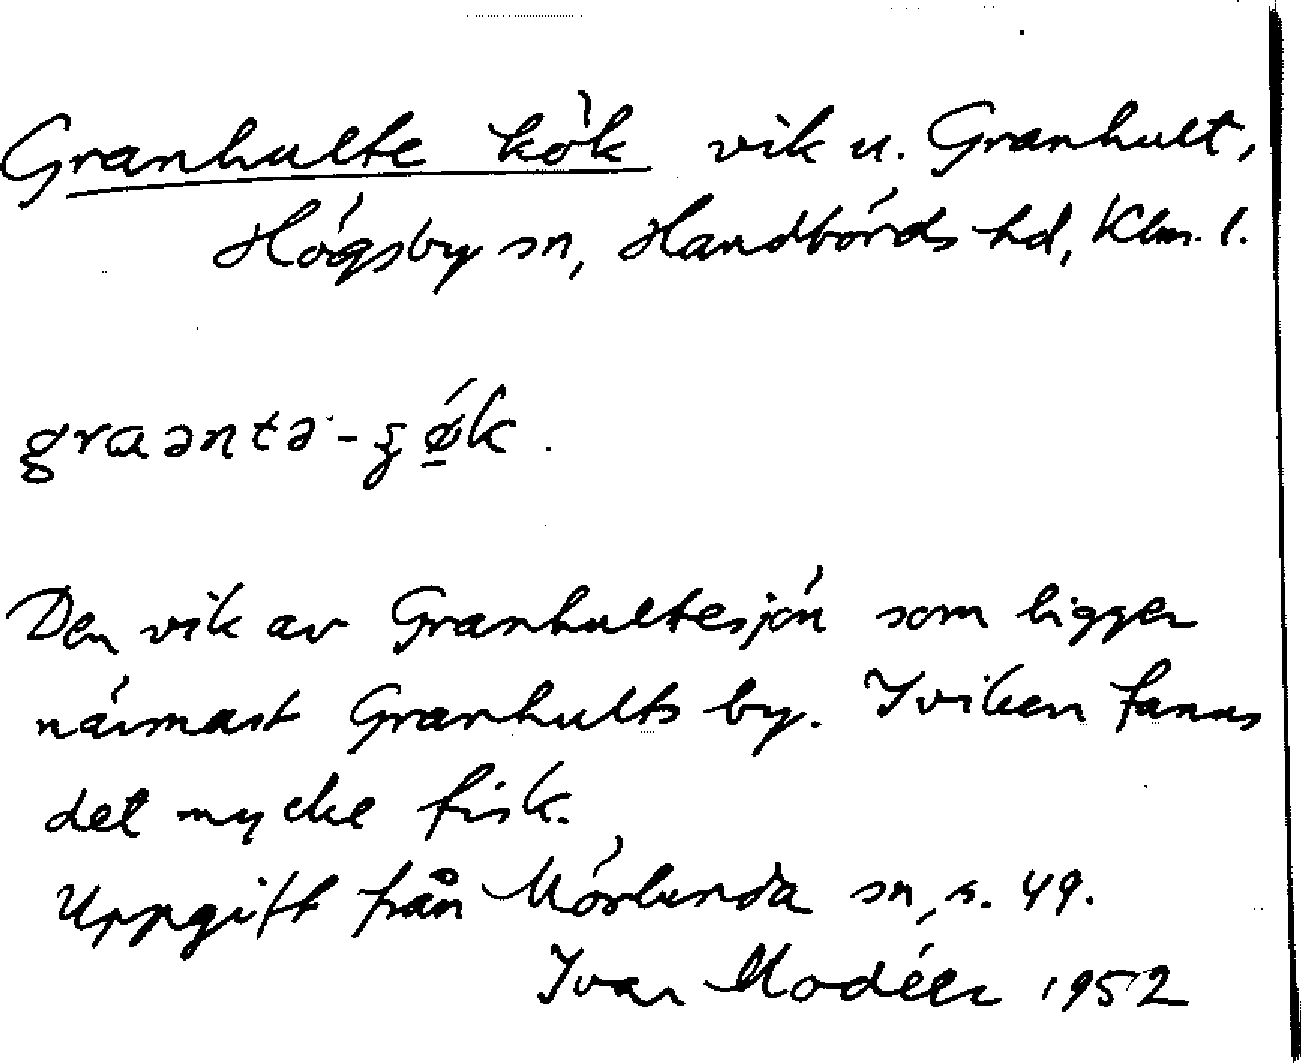 Granhulte kök vik u. Granhult,
Högsby sn, Handbörds hd, Klm. l.
graəntə-ʒǿ̱k.
Den vik av Granhultesjön som ligger
närmast Granhults by. I viken fanns
det mycke fisk.
Uppgift från Mörlunda sn, s. 49.
Ivar Modéer 1952